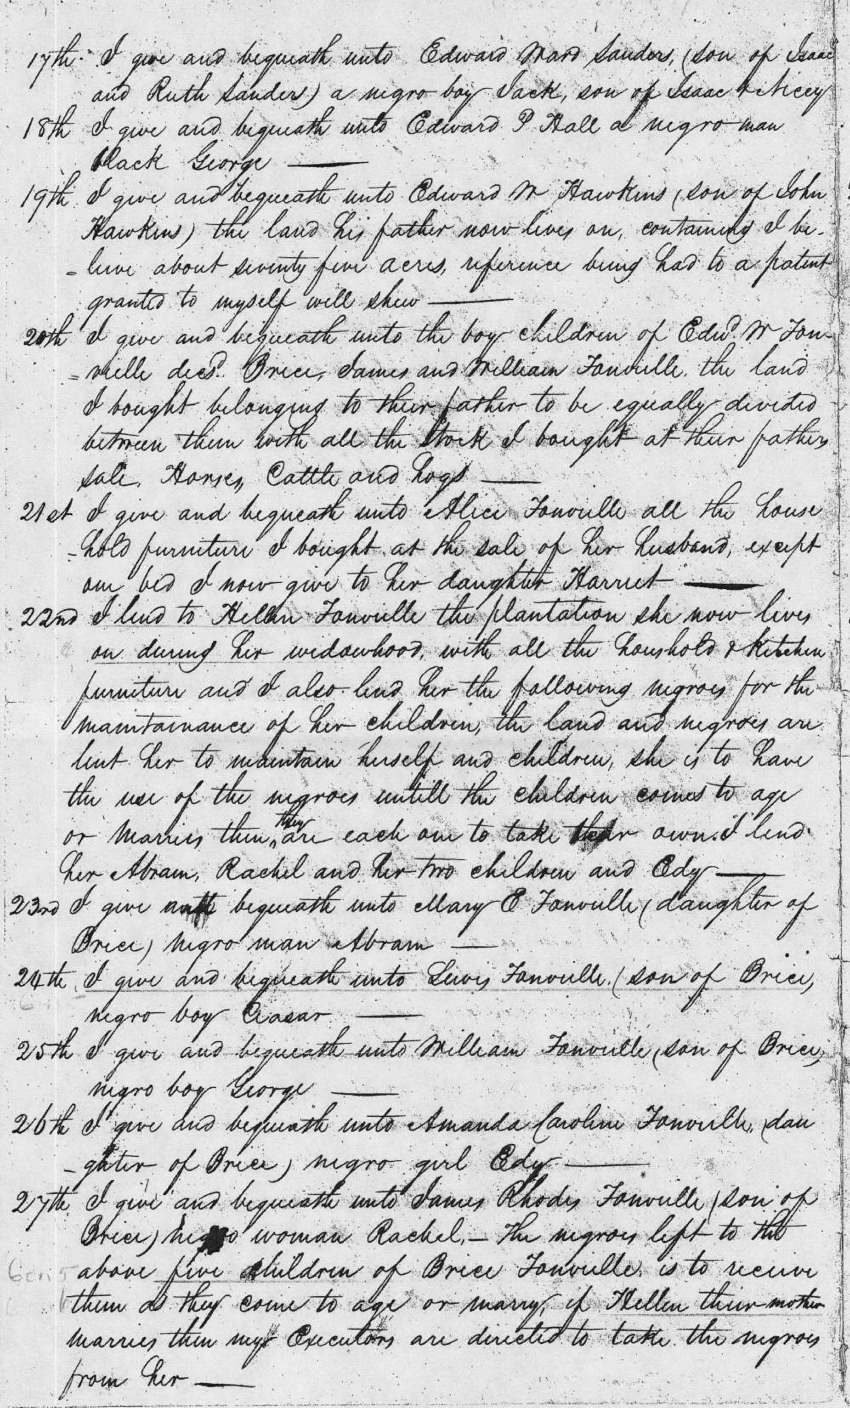 17th I give and bequeath unto Edward Ward Sanders, (son of Isaac
and Ruth Sanders) a negro boy Jack, son of Isaac & Nicey
18th I give and bequeath unto Edward P Hall a negro man
black George —
19th I give and bequeath unto Edward W Hawkins (son of John
Hawkins) the land his father now lives on, containing I be-
-lieve about seventy five acres, reference being had to a patent
granted to myself will shew —
20th I give and bequeath unto the boy children of Edwd. W Fon-
-vielle decsd. Brice, James and William Fonville the land
I bought belonging to their father to be equally divided
between them with all the stock I bought at their fathers
sale, Horses, Cattle and hogs —
21st I give and bequeath unto Alice Fonville all the house
-hold furniture I bought at the sale of her husband, except
one bed I now give to her daughter Harriet —
22nd I lend to Hellen Fonville the plantation she now lives
on during her widowhood, with all the houshold & Kitchen
furniture and I also lend her the following negroes for the
maintainance of her children, the land and negroes are
lent her to maintain herself and children, she is to have
the use of the negroes untill the children comes to age
or marries then they are each one to take their own. I lend
her Abram, Rachel and her two children and Edy —
23rd I give and bequeath unto Mary E Fonville (daughter of
Brice) negro man Abram —
24th I give and bequeath unto Lewis Fonville (son of Brice,
negro boy Ceasar —
25th I give and bequeath unto William Fonville (son of Brice,
negro boy George —
26th I give and bequeath unto Amanda Caroline Fonville, (dau
-ghter of Brice) negro girl Edy —
27th I give and bequeath unto James Rhodes Fonville (son of
Brice) negro woman Rachel, — The negroes left to the
above five children of Brice Fonville is to receive
them as they come to age or marry, if Hellen their mother
marries then my Executors are directed to take the negroes
from her —